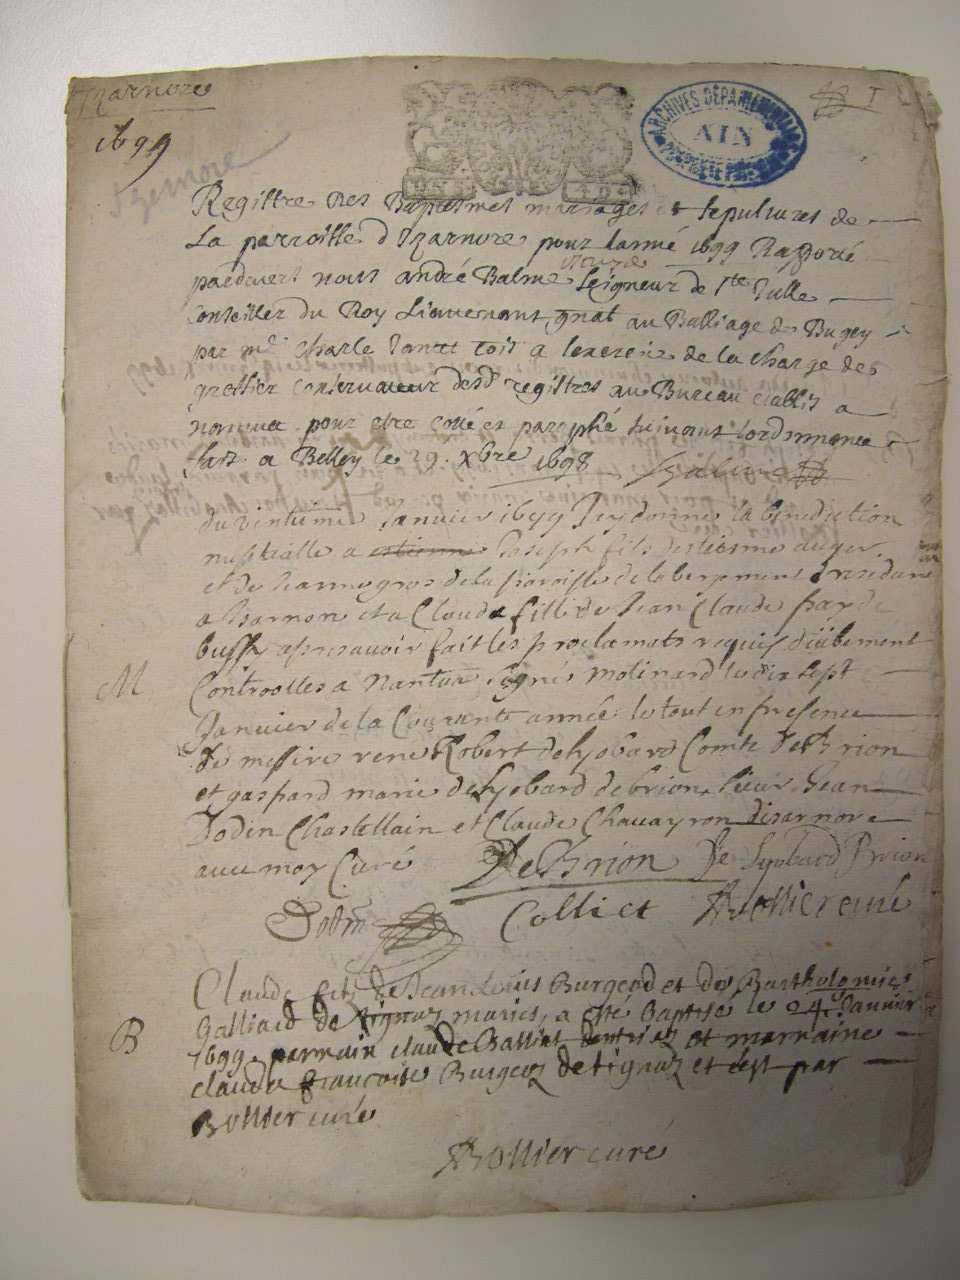 Izarnore
1699
Izernore
ARCHIVES DÉPARTEMENTALES
AIN
I
Registre des Baptesmes mariages et sepultures de
La parroisse d Izarnore pour lannée 1699 Rapporté
pardevert nous andré Balme Seigneur de Ste Julle
Conseiller du Roy Lieutenant gnal au Balliage de Bugey
par me Charle Jantet Coit a lexercice de la charge de
greffier conservateur desd registres au Bureau establis a
nantua pour etre cotté et paraphé suivant lordonnance
fait a Belley le 29 xbre 1698 Balme
du vintieme Janvier 1699 Jay donne la benediction
nuptialle a estienne Joseph fils destienne auger
et de Jeanne gros de la paroisse de labergement residant
a Isarnore et a Clauda fille de Jean Claude
apres avoir fait les proclamats requis düebement
M
Controolles a Nantua signés molinard le dix sept
Janvier de la Courante année le tout en presence
de messire rené Robert deLyobard Comte deBrion
et gaspard marie deLyobard de brion, sieur Jean
Dodin Chastellain et Claude Chavayron disarnore
avec moy Curé DeBrion De Lyobard Brion
Colliet ABollier curé
Claude fils de Jean Louis Burgeod et de Bartholomie
Galliard de tignat mariés, a esté Baptisé le 24e Janvier
B
1699. parrain claude Balliat et marraine
clauda francoise Burgeoz de tignaz et cest par
Bollier curé
ABollier curé